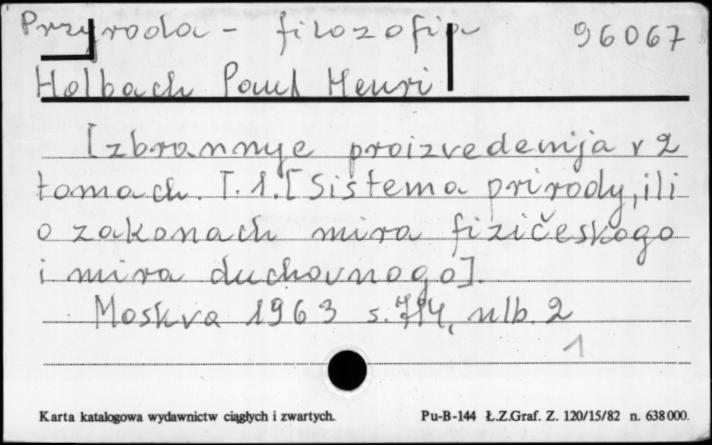 Przyroda - filozofia 96067
Holbach Paul Henri
Izbrannye proizvedenija v 2
tomach. T. 1. [Sistema prirody, ili
o zakonach mira fizičeskogo
i mira duchovnogo].
Moskva 1963 s. 714, nlb. 2
1
Karta katalogowa wydawnictw ciągłych i zwartych. Pu-B-144 Ł.Z.Graf. Z. 120/15/82 n. 638000.